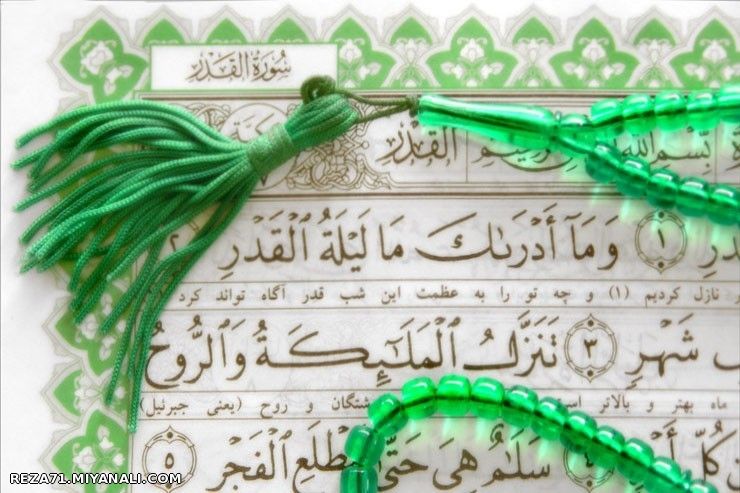 سُورَةُ القَدْرِ
القَدْرِ بِسْمِ اللهِ
١ وَمَآ أَدْرَىٰكَ مَا لَيْلَةُ ٱلْقَدْرِ ٢
نازل کردیم (١) و چه تو را به عظمت این شب قدر آگاه تواند کرد
شَهْرٍ ٣ تَنَزَّلُ ٱلْمَلَـٰٓئِكَةُ وَٱلرُّوحُ
ماه بهتر و بالاتر شتگان و روح (یعنی جبرئیل)
سَلَـٰمٌ هِىَ حَتَّىٰ مَطْلَعِ ٱلْفَجْرِ ٥
REZA71.MIYANALI.COM